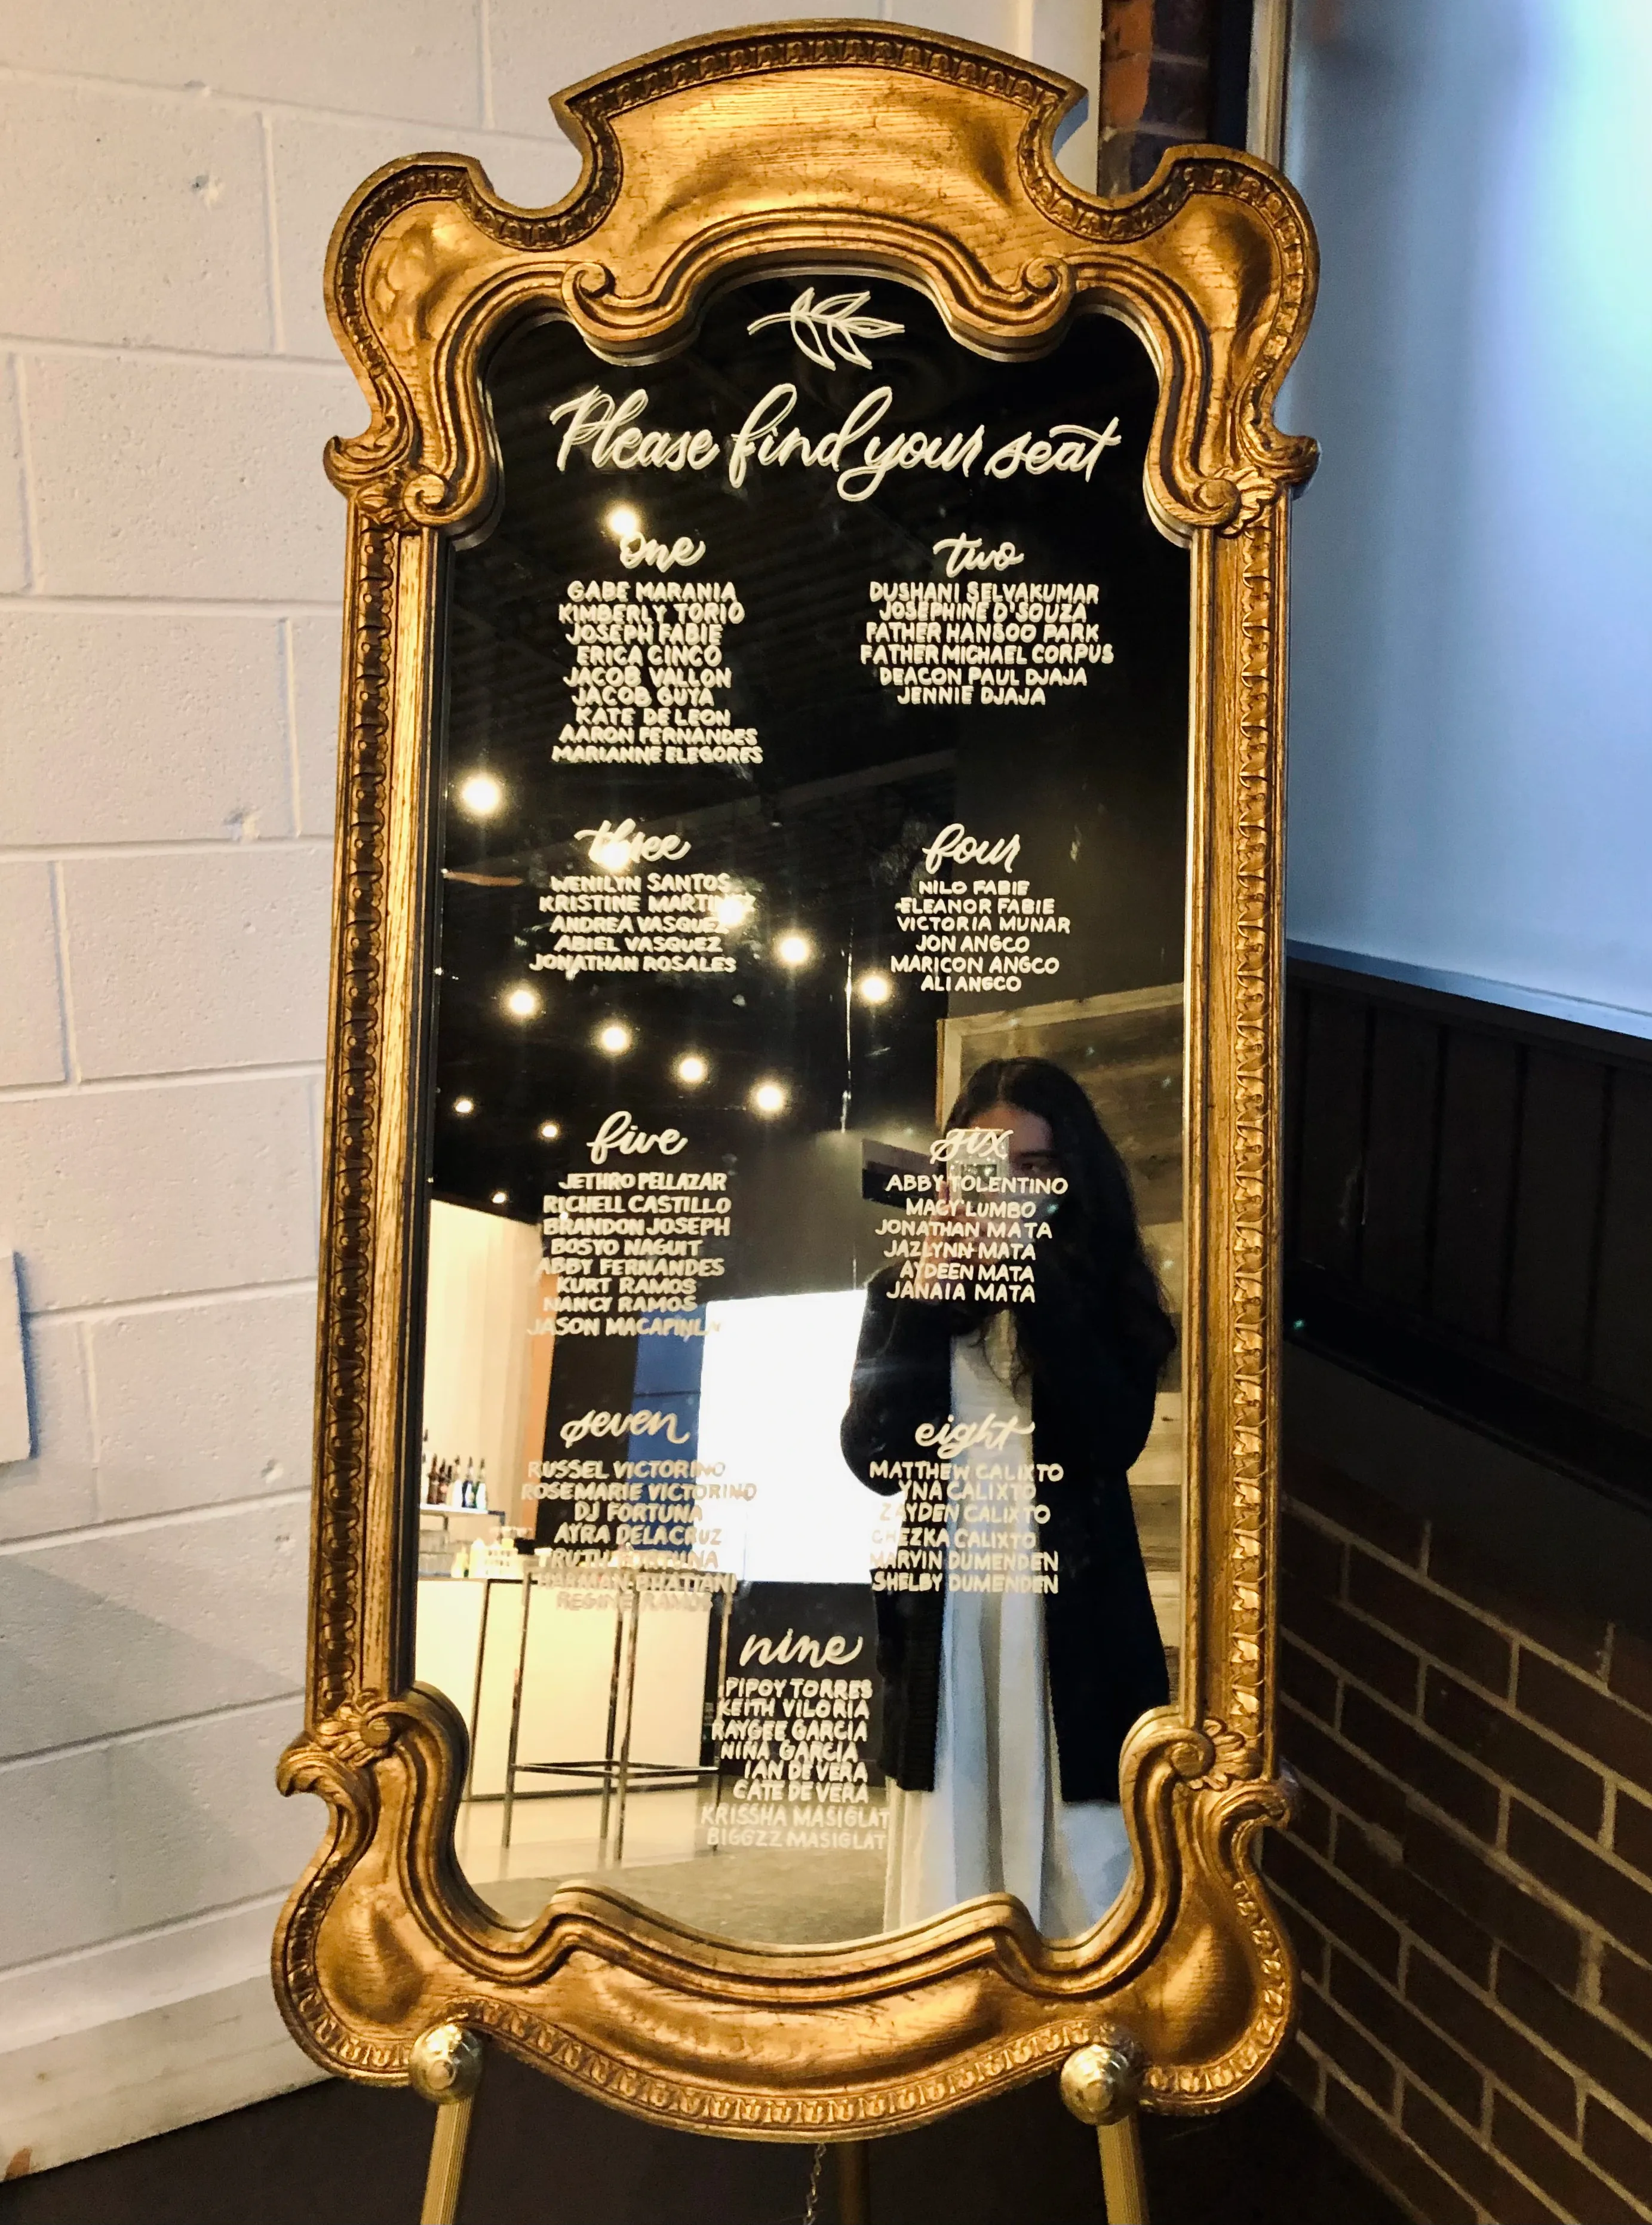 Please find your seat
one
GABE MARANIA
KIMBERLY TORIO
JOSEPH FABIE
ERICA CINCO
JACOB VALLON
JACOB GUYA
KATE DE LEON
AARON FERNANDES
MARIANNE ELEGORES
two
DUSHANI SELVAKUMAR
JOSEPHINE D'SOUZA
FATHER HANSOO PARK
FATHER MICHAEL CORPUS
DEACON PAUL DJAJA
JENNIE DJAJA
three
WENILYN SANTOS
KRISTINE MARTINEZ
ANDREA VASQUEZ
ABIEL VASQUEZ
JONATHAN ROSALES
four
NILO FABIE
ELEANOR FABIE
VICTORIA MUNAR
JON ANGCO
MARICON ANGCO
ALI ANGCO
five
JETHRO PELLAZAR
RICHELL CASTILLO
BRANDON JOSEPH
BOSYO NAGUIT
ABBY FERNANDES
KURT RAMOS
NANCY RAMOS
JASON
six
ABBY TOLENTINO
MACY LUMBO
JONATHAN MATA
JAZLYNN MATA
AYDEEN MATA
JANAIA MATA
seven
RUSSEL VICTORINO
ROSEMARIE VICTORINO
DJ FORTUNA
AYRA DELACRUZ
TRUTH FORTUNA
BHATTANI
REGINE RAMOS
eight
MATTHEW CALIXTO
YNA CALIXTO
ZAYDEN CALIXTO
CHEZKA CALIXTO
MARVIN DUMENDEN
SHELBY DUMENDEN
nine
PIPOY TORRES
KEITH VILORIA
RAYGEE GARCIA
NIÑA GARCIA
IAN DE VERA
CATE DE VERA
KRISSHA MASIGLAT
BIGGZZ MASIGLAT